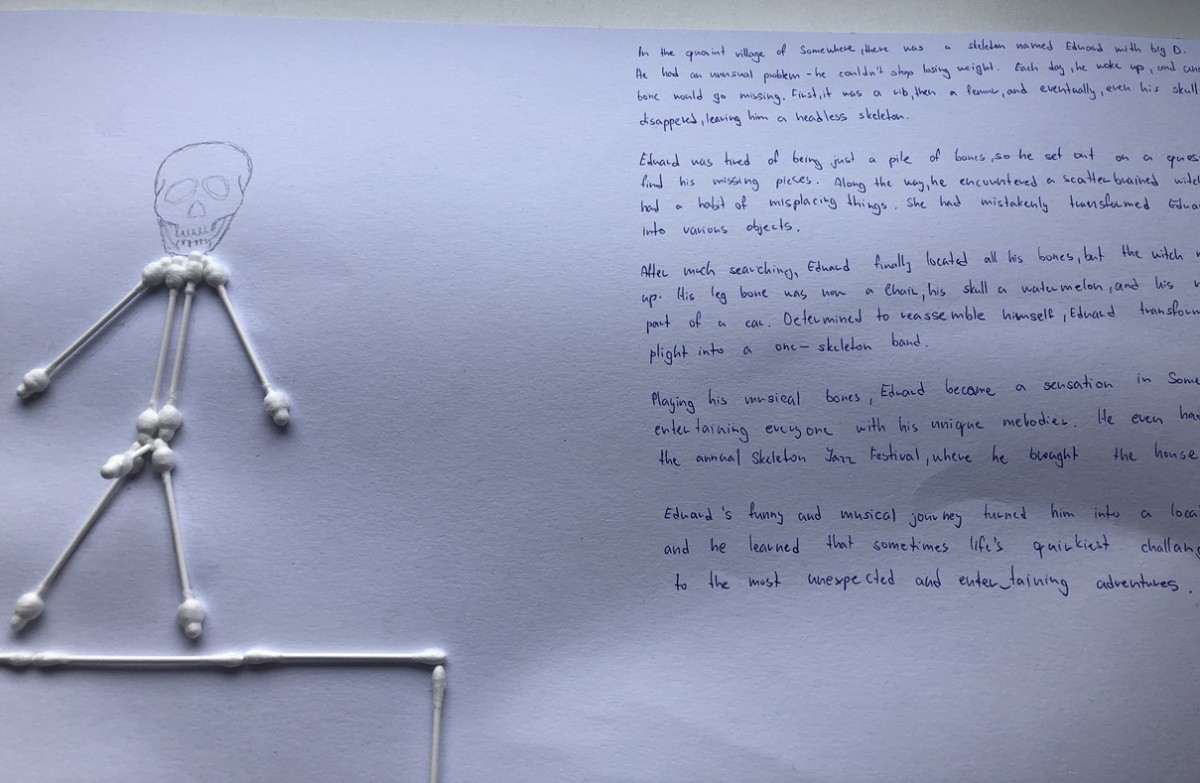 In the quaint village of Somewhere, there was a skeleton named Eduard with big D.
He had an unusual problem - he couldn't stop losing weight. Each day, he woke up, and
bone would go missing. First, it was a rib, then a femur, and eventually, even his skull
disappered, leaving him a headless skeleton.
Eduard was tired of being just a pile of bones, so he set out on a
find his missing pieces. Along the way, he encountered a scatterbrained
had a habit of misplacing things. She had mistakenly transformed
into various objects.
After much searching, Eduard finally located all his bones, but the witch
up. His leg bone was now a chair, his skull a watermelon, and his
part of a car. Determined to reassemble himself, Eduard
plight into a one-skeleton band.
Playing his musical bones, Eduard became a sensation in
entertaining everyone with his unique melodies. He even
the annual Skeleton Jazz Festival, where he brought the house
Eduard's funny and musical journey turned him into a
and he learned that sometimes life's quirkiest
to the most unexpected and enter_taining adventures.